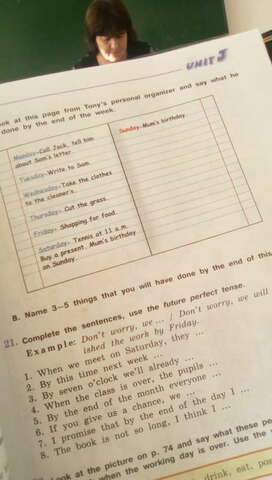 UNIT 3
ook at this page from Tony's personal organizer and say what he
done by the end of the week.
Monday-Call Jack, tell him
about Sam's letter.
Tuesday-Write to Sam.
Wednesday-Take the clothes
to the cleaner's.
Thursday- Cut the grass.
Friday- Shopping for food.
Saturday- Tennis at 11 a.m.
Buy a present. Mum's birthday
on Sunday.
Sunday-Mum's birthday.
8. Name 3—5 things that you will have done by the end of this
21. Complete the sentences, use the future perfect tense.
Example: Don't worry, we ... ; Don't worry, we will
ished the work by Friday.
1. When we meet on Saturday, they ...
2. By this time next week ...
3. By seven o'clock we'll already ...
4. When the class is over, the pupils ...
5. By the end of the month everyone ...
6. If you give us a chance, we ...
7. I promise that by the end of the day I ...
8. The book is not so long, I think I ...
Look at the picture on p. 74 and say what these pe
when the working day is over. Use the
drink, eat, pos